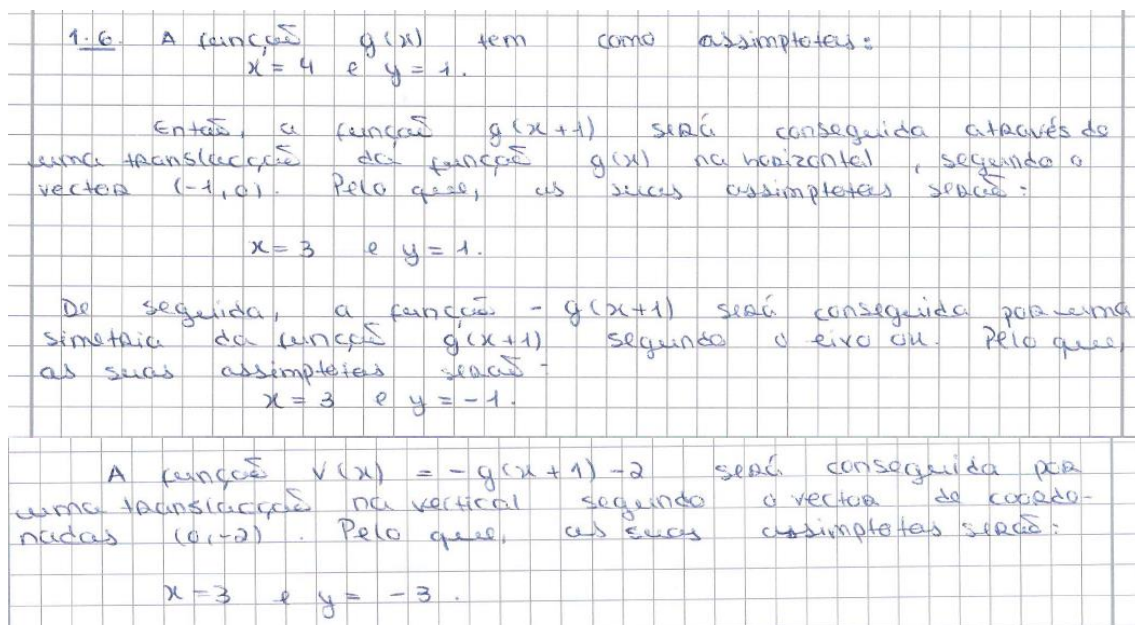 1.6. A função g(x) tem como assimptotas:
x = 4 e y = 1.
Então, a função g(x+1) será conseguida através de
uma translacção da função g(x) na horizontal, segundo o
vector (-1,0). Pelo que, as suas assimptotas serão:
x = 3 e y = 1.
De seguida, a função - g(x+1) será conseguida por uma
simetria da função g(x+1) segundo o eixo ox. Pelo que,
as suas assimptotas serão:
x = 3 e y = -1.
A função v(x) = -g(x+1) -2 será conseguida por
uma translacção na vertical segundo o vector de coordo-
nadas (0,-2). Pelo que, as suas assimptotas serão:
x = 3 e y = -3.